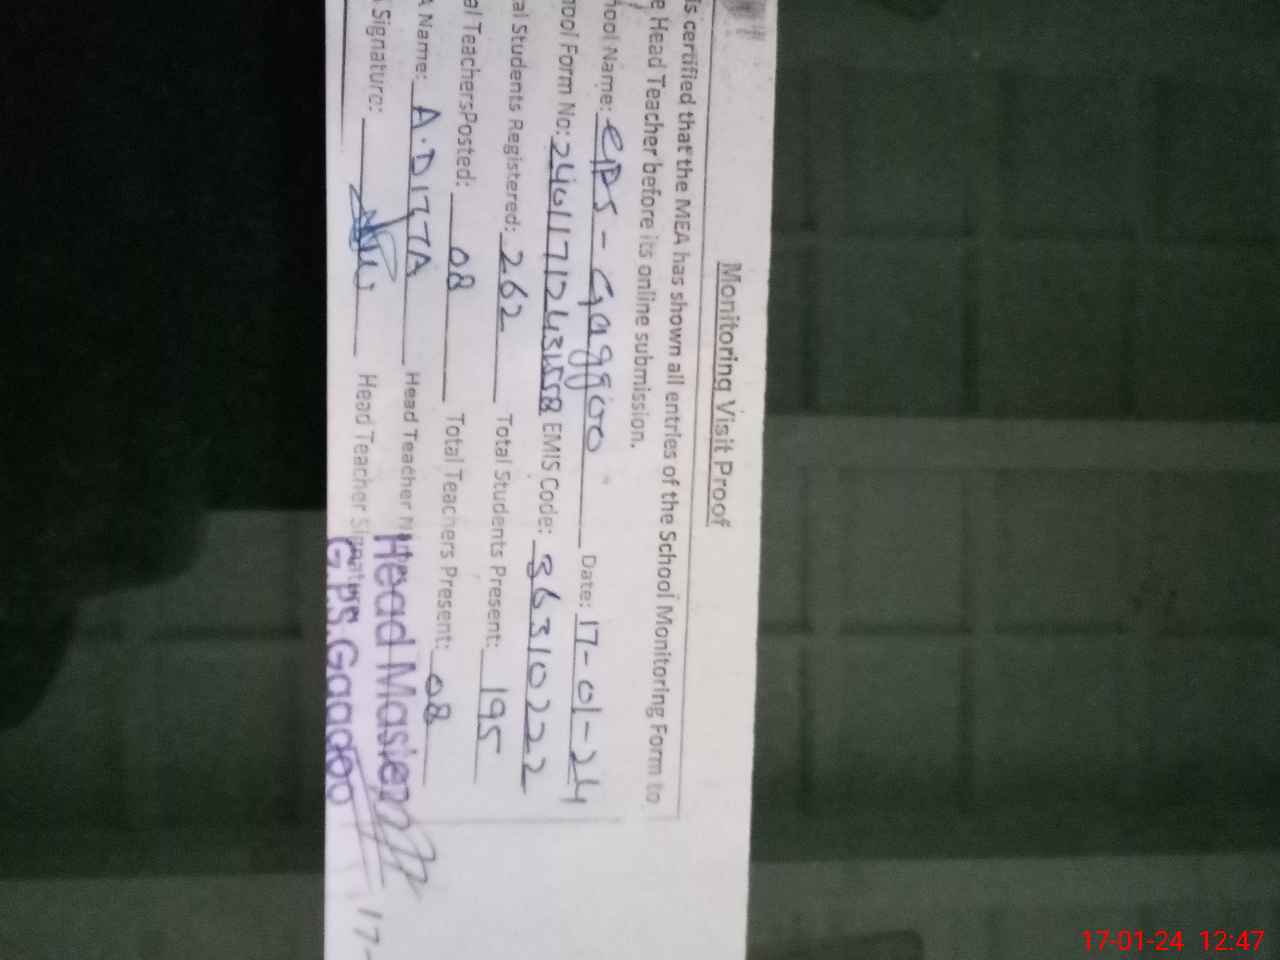 Monitoring Visit Proof
is certified that the MEA has shown all entries of the School Monitoring Form to
e Head Teacher before its online submission.
hool Name: GPS - Gaggoo Date: 17-01-24
hool Form No: EMIS Code: 36310222
al Students Registered: 262 Total Students Present: 195
al TeachersPosted: 08 Total Teachers Present: 08
A Name: A.DITTA Head Teacher
Signature: Head Teacher Signature
Head Master
G.P.S. Gaggoo
17-
17-01-24 12:47